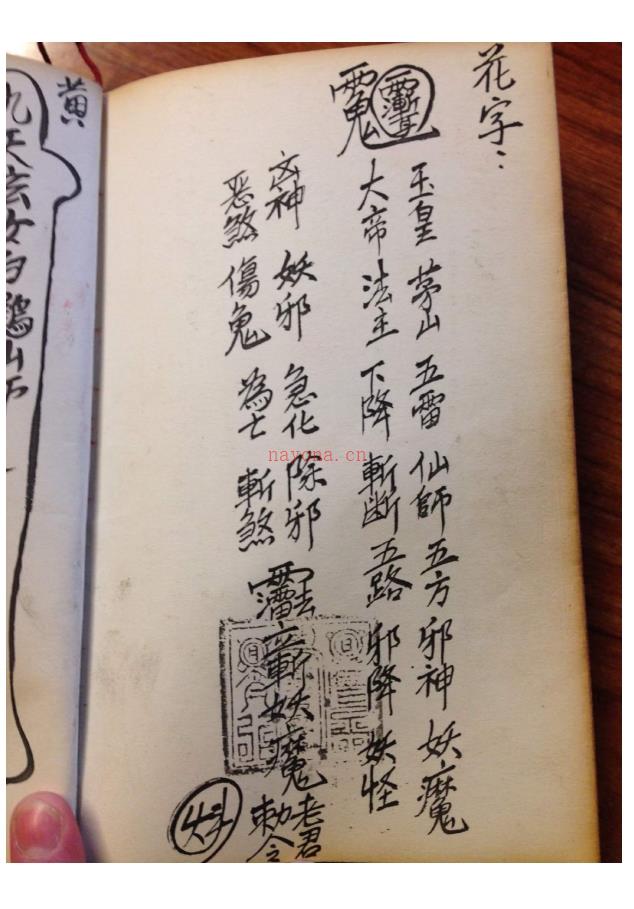 花字：
玉皇 茅山 五雷 仙師 五方 邪神 妖魔
大帝 法主 下降 斬断 五路 邪降 妖怪
凶神 妖邪 急化 除邪
恶煞 傷鬼 為亡 斬煞
斬妖魔
老君
勅令
黄
九天玄女白鶴山
nayona.cn